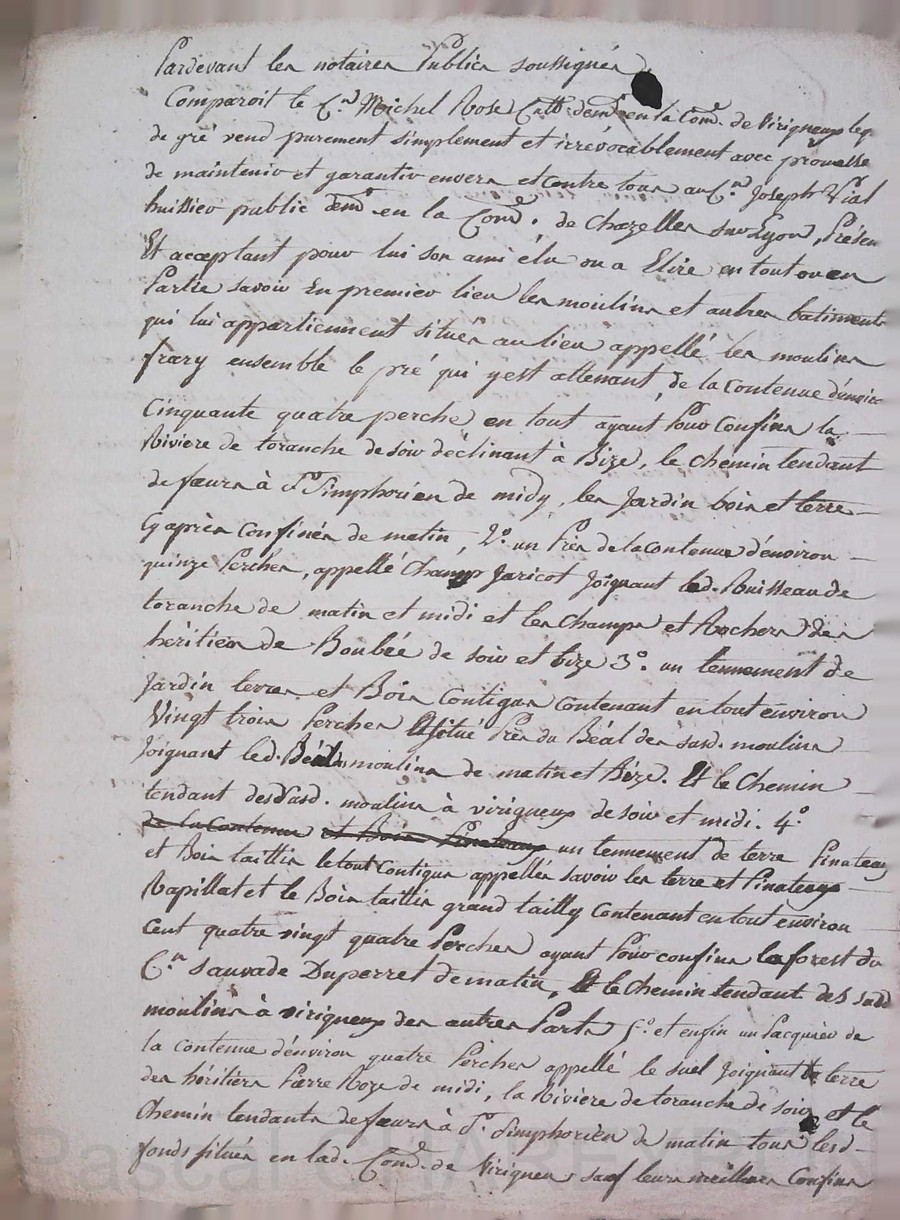 Pardevant les notaires Publics soussignés
Comparoit le C.en Michel Rose Cult. dem.t en la Com.e de Virigneux leq.
de gré vend purement simplement et irrévocablement avec promesse
de maintenir et garantir envers et contre tous au C.en Joseph Vial
huissier public dem.t en la Com.e de Chazelles sur Lyon, Présent
Et acceptant pour lui son ami élu ou a Elire en tout ou en
Partie savoir En premier lieu les moulins et autres batiments
qui lui appartiennent situés au lieu appellé les moulins
frary ensemble le pré qui y est attenant, de la Contenue d'environ
Cinquante quatre perches en tout ayant Pour Confins la
Riviere de toranche de soir déclinant à Bize, le chemin tendant
de feurs à S.t Simphorien de midy, les Jardin bois et terre
Cy après Confinés de matin, 2.o un Prés de la contenue d'environ
quinze Perches, appellé Champ Jaricot Joignant led. Ruisseau de
toranche de matin et midi et les Champs et Rochers des
héritiers de Boubée de soir et bize 3.o un tennement de
Jardin terres et Bois Contigus Contenant en tout environ
Vingt trois Perches situé Près du Béal des susd. moulins
Joignant led. Béal moulins de matin et Bize. Et le Chemin
tendant desd. moulins à virigneux de soir et midi. 4.o
de la Contenue et Bois Pinateaux un tennement de terre Pinateaux
et Bois taillis le tout Contigus appellés savoir les terre et Pinateaux
Rapillat et le Bois taillis grand tailly Contenant en tout environ
Cent quatre vingt quatre Perches ayant Pour confins la forest du
C.en Sauvade Duperret de matin, Et le Chemin tendant des susd
moulins à virigneux des autres Parts 5.o et enfin un Pacquier de
la contenue d'environ quatre Perches appellé le suel Joignant terre
des héritiers Pierre Roze de midi, la Riviere de toranche de soir et le
Chemin tendants de feurs à S.t Simphorien de matin tous lesd
fonds situés en lad. Com.e de Virigneux sauf leurs meilleurs Confins
Pascal CHAPEYRON